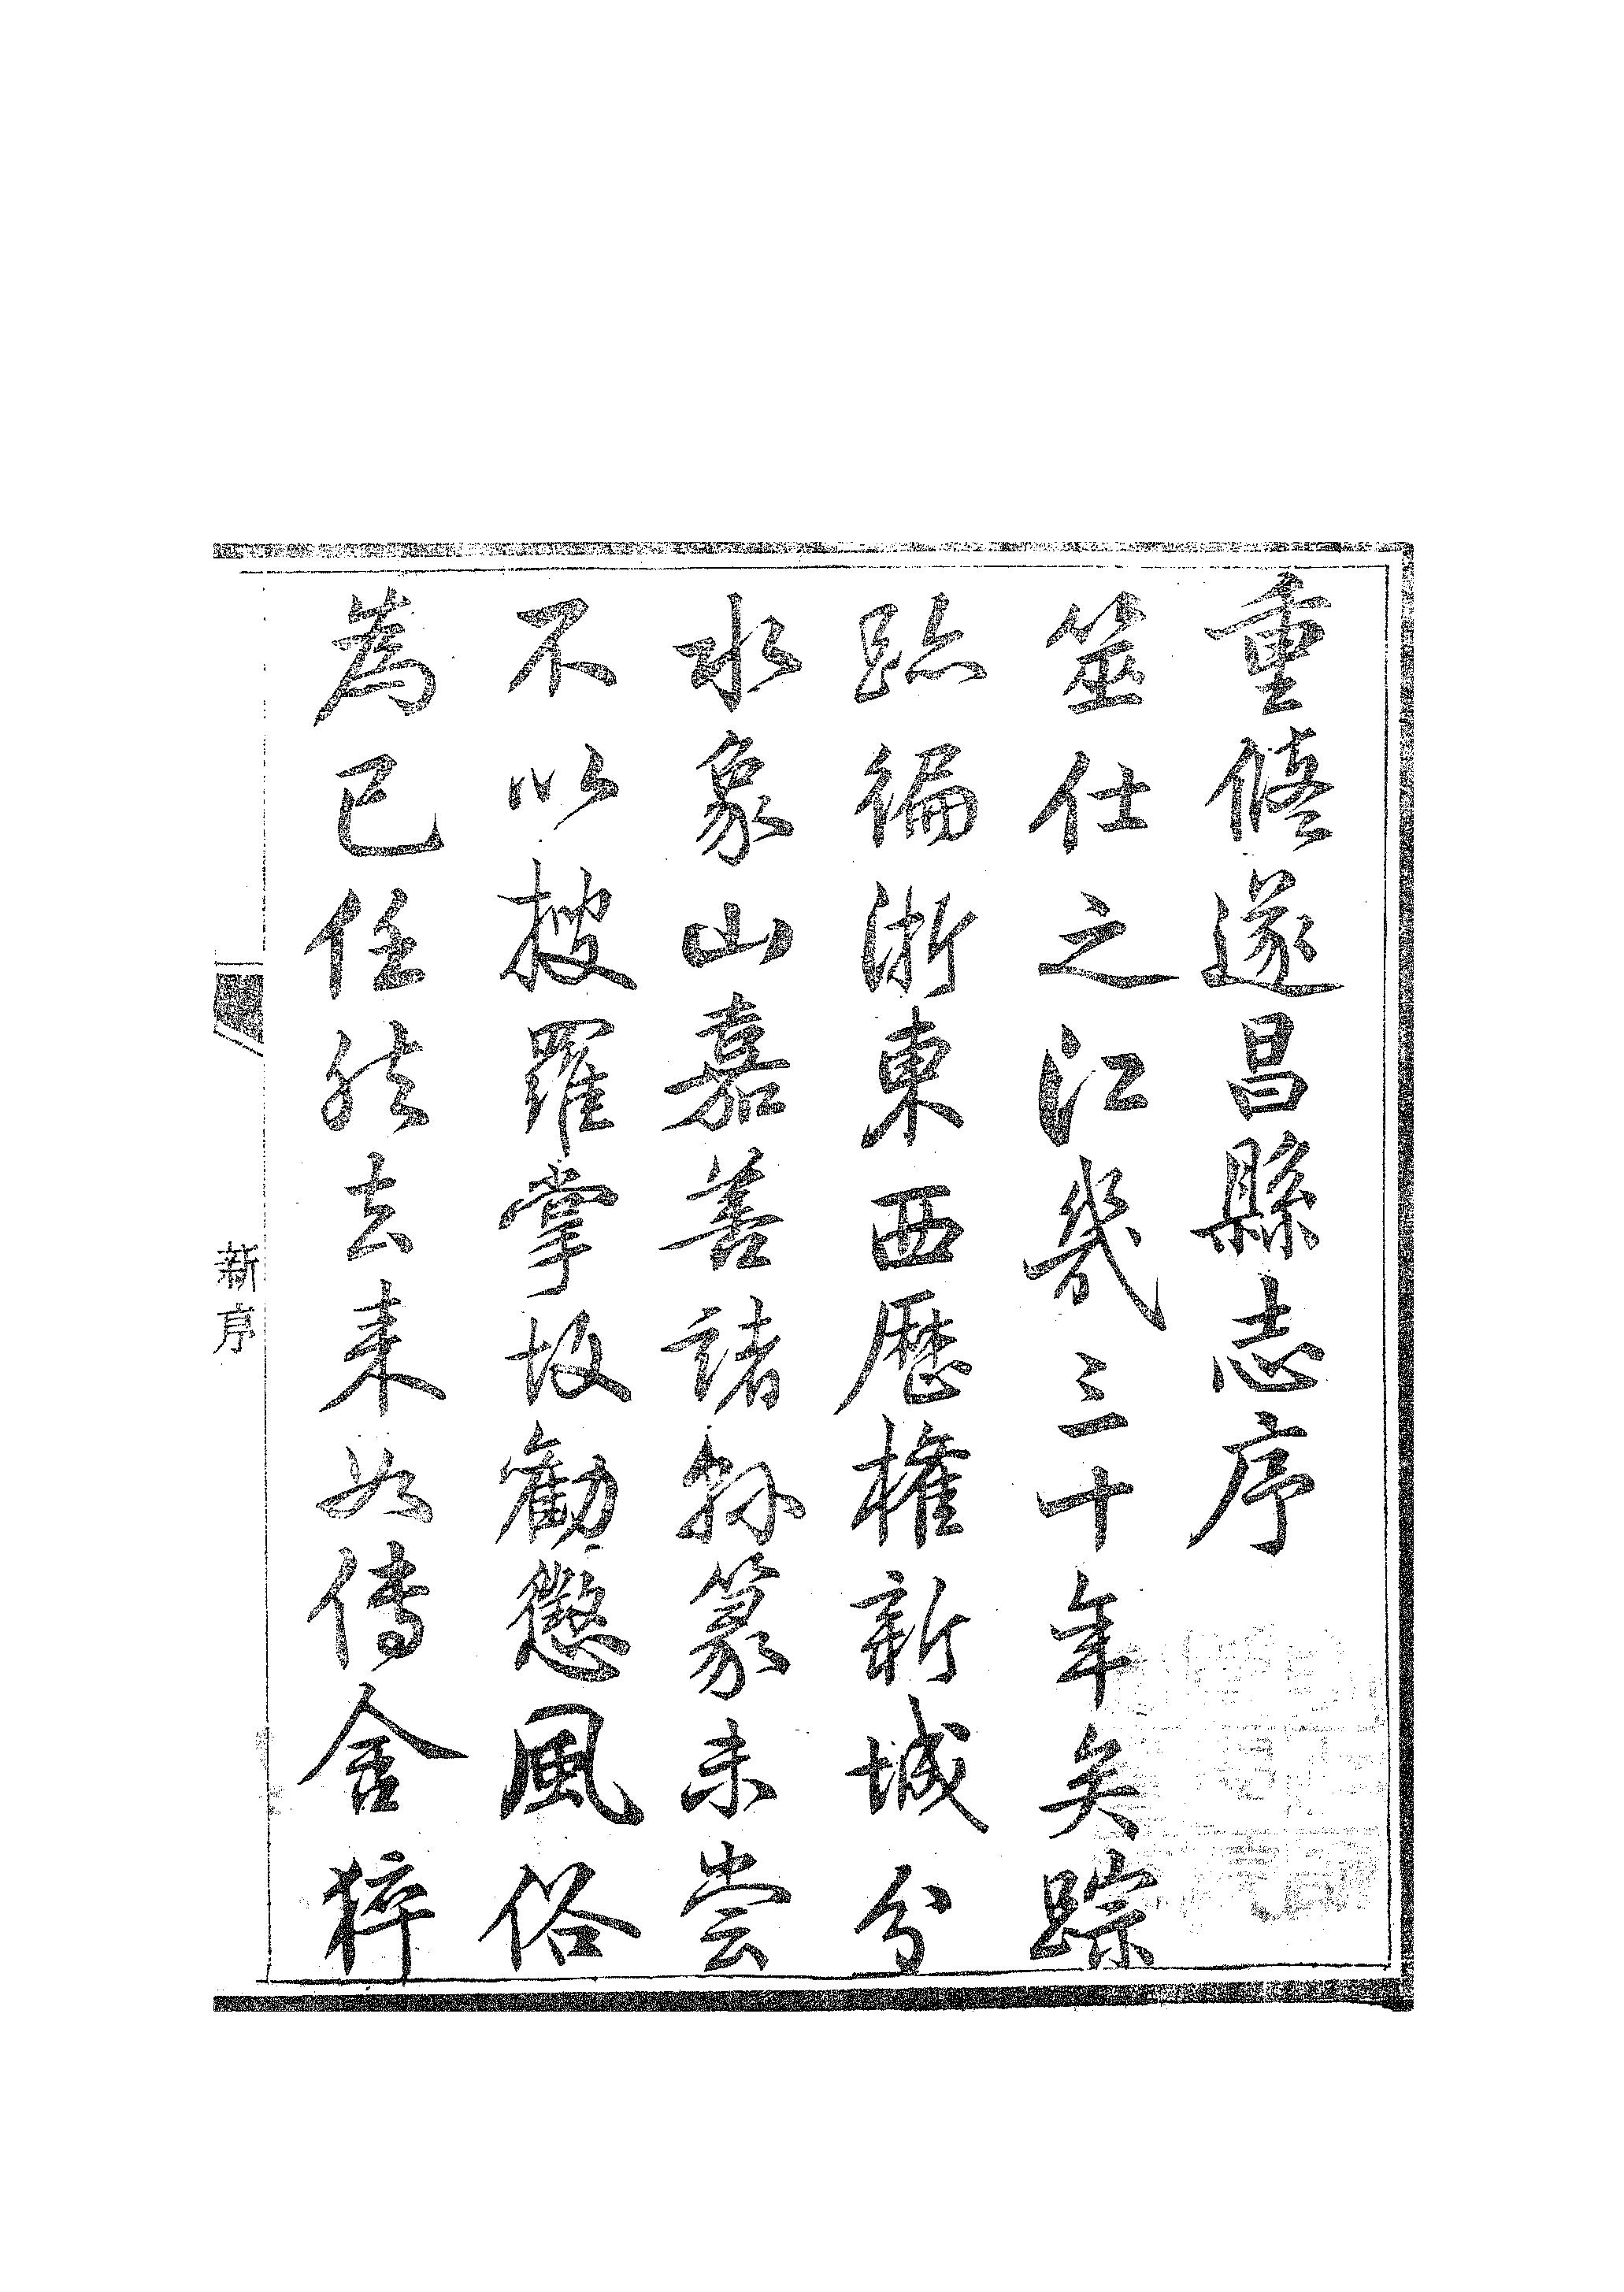 重修遂昌縣志序
筮仕之江幾三十年矣踪
跡徧浙東西歷權新城分
水象山嘉善諸縣篆未尝
不以搜羅掌故勸懲風俗
為己任然去来如傳舍猝
新序